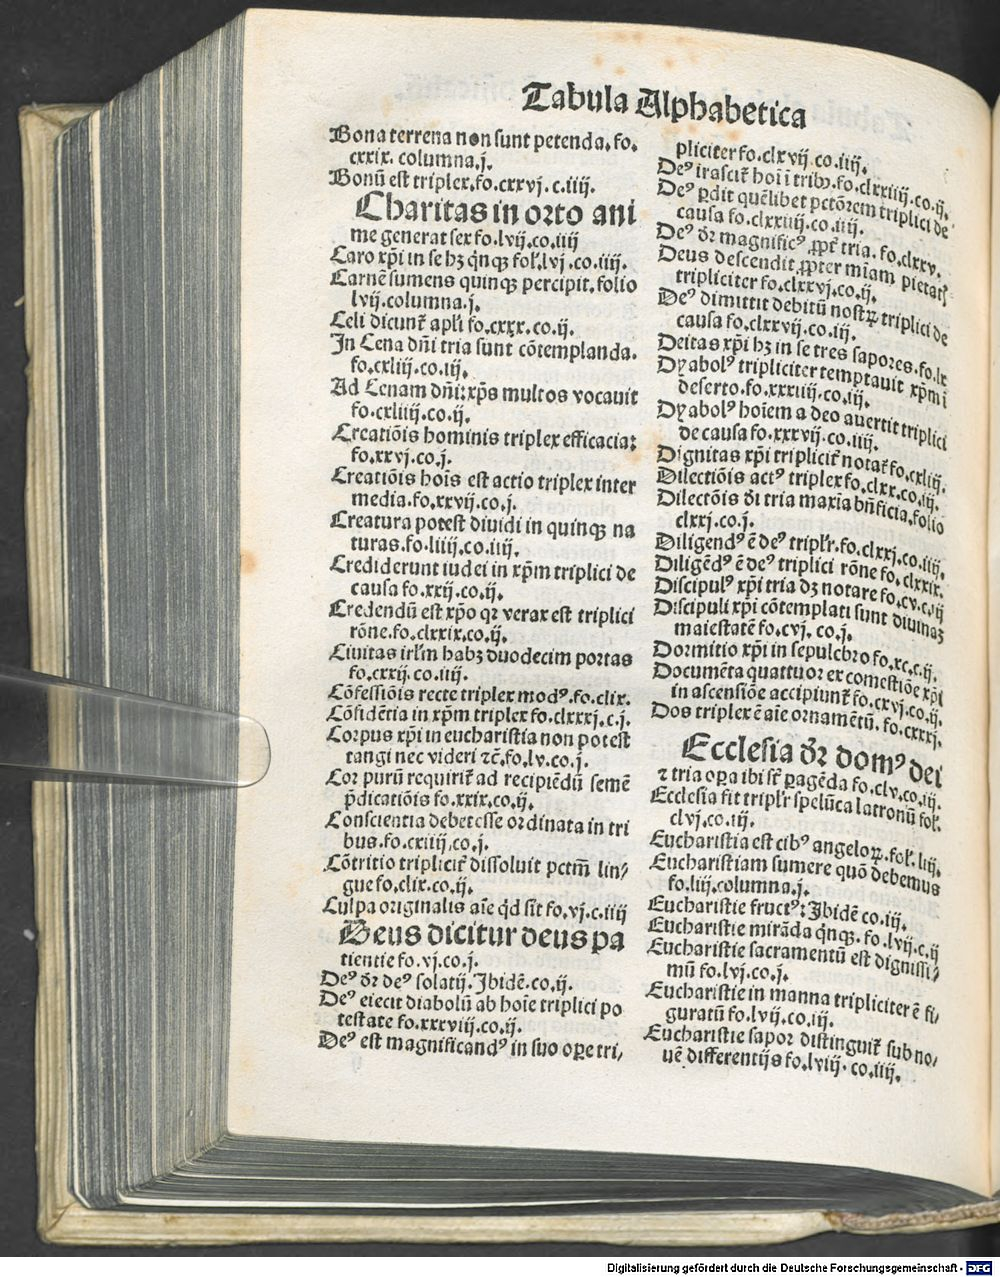 Tabula Alphabetica
Bona terrena non sunt petenda. fo.
cxxix. columna.j.
Bonū est triplex.fo.cxxvj.c.iiij.
Charitas in orto ani
me generat sex fo.lvij.co.iiij
Caro xp̄i in se hꝫ qͥnqꝫ fol̓.lvj.co.iiij.
Carnē sumens quinqꝫ percipit.folio
lvij.columna.j.
Celi dicunt̄ apl̓i fo.cxxx.co.ij.
In Cena dn̄i tria sunt cōtemplanda.
fo.cxliij.co.iij.
Ad Cenam dn̄i:xp̄s multos vocauit
fo.cxliiij.co.ij.
Creatiōis hominis triplex efficacia:
fo.xxvj.co.j.
Creatiōis hoīs est actio triplex inter
media.fo.xxvij.co.j.
Creatura potest diuidi in quinqꝫ na
turas.fo.liiij.co.iiij.
Crediderunt iudei in xp̄m triplici de
causa fo.xxij.co.ij.
Credendū est xp̄o qꝛ verax est triplici
rōne.fo.clxxix.co.ij.
Ciuitas irl̓m habꝫ duodecim portas
fo.cxxij.co.iiij.
Cōfessiōis recte triplex modꝰ.fo.clix.
Cōfidētia in xp̄m triplex fo.clxxxj.c.j.
Corpus xp̄i in eucharistia non potest
tangi nec videri ⁊c̄.fo.lv.co.j.
Cor purū requirit̄ ad recipiēdū semē
p̄dicatiōis fo.xxix.co.ij.
Conscientia debet esse ordinata in tri
bus.fo.cxiiij.co.j.
Cōtritio triplicit̄ dissoluit pctm̄ lin⸗
gue fo.clix.co.ij.
Culpa originalis aīe qͥd sit fo.vj.c.iiij
Deus dicitur deus pa
tientie fo.vj.co.j.
Deꝰ dr̄ deꝰ solatij. Ibidē.co.ij.
Deꝰ eiecit diabolū ab hoīe triplici po
testate fo.xxxviij.co.ij.
Deꝰ est magnificandꝰ in suo oꝑe tri⸗
pliciter fo.clxvij.co.iij.
Deꝰ irascit̄ hoī ī tribꝫ.fo.clxxiiij.co.ij.
Deꝰ ꝑdit quēlibet pctōrem triplici de
causa fo.clxxiiij.co.iiij.
Deꝰ dr̄ magnificꝰ ꝓpt̄ tria. fo.clxxv.
Deus descendit ꝓpter miam pietatꝭ
tripliciter fo.clxxvj.co.ij.
Deꝰ dimittit debitū nostꝝ triplici de
causa fo.clxxvij.co.iij.
Deitas xp̄i hꝫ in se tres sapores.fo.lx
Dyabolꝰ tripliciter temptauit xp̄m ī
deserto.fo.xxxviij.co.iij.
Dyabolꝰ hoīem a deo auertit triplici
de causa fo.xxxvij.co.iiij.
Dignitas xp̄i triplicit̄ notat̄ fo.cxliij.
Dilectiōis actꝰ triplex fo.clxx.co.iij.
Dilectōis di tria maxīa bn̄ficia.folio
clxxj.co.j.
Diligendꝰ ē deꝰ tripl̓r.fo.clxxj.co.iiij.
Diligēdꝰ ē deꝰ triplici rōne fo.clxxix.
Discipulꝰ xp̄i tria dꝫ notare fo.cv.c.iij
Discipuli xp̄i cōtemplati sunt diuinaꝫ
maiestatē fo.cvj. co.j.
Dormitio xp̄i in sepulchro fo.xc.c.ij.
Documēta quattuor ex comestiōe xp̄i
in ascensiōe accipiunt̄ fo.cxvj.co.ij.
Dos triplex ē aīe ornamētū. fo.cxxxj.
Ecclesia dr̄ domꝰ dei
⁊ tria oꝑa ibi sūt ꝑagēda fo.clv.co.iij.
Ecclesia fit tripl̓r spelūca latronū fol̓.
clvj.co.iij.
Eucharistia est cibꝰ angeloꝝ.fol̓.liij.
Eucharistiam sumere quō debemus
fo.liij.columna.j.
Eucharistie fructꝰ: Ibidē co.iij.
Eucharistie mirāda qͥnqꝫ. fo.lvij.c.ij
Eucharistie sacramentū est dignissi⸗
mū fo.lvj.co.j.
Eucharistie in manna tripliciter ē fi⸗
guratū fo.lvij.co.iij.
Eucharistie sapor distinguit̄ sub no⸗
uē differentijs fo.lviij. co.iiij.
Digitalisierung gefördert durch die Deutsche Forschungsgemeinschaft - DFG